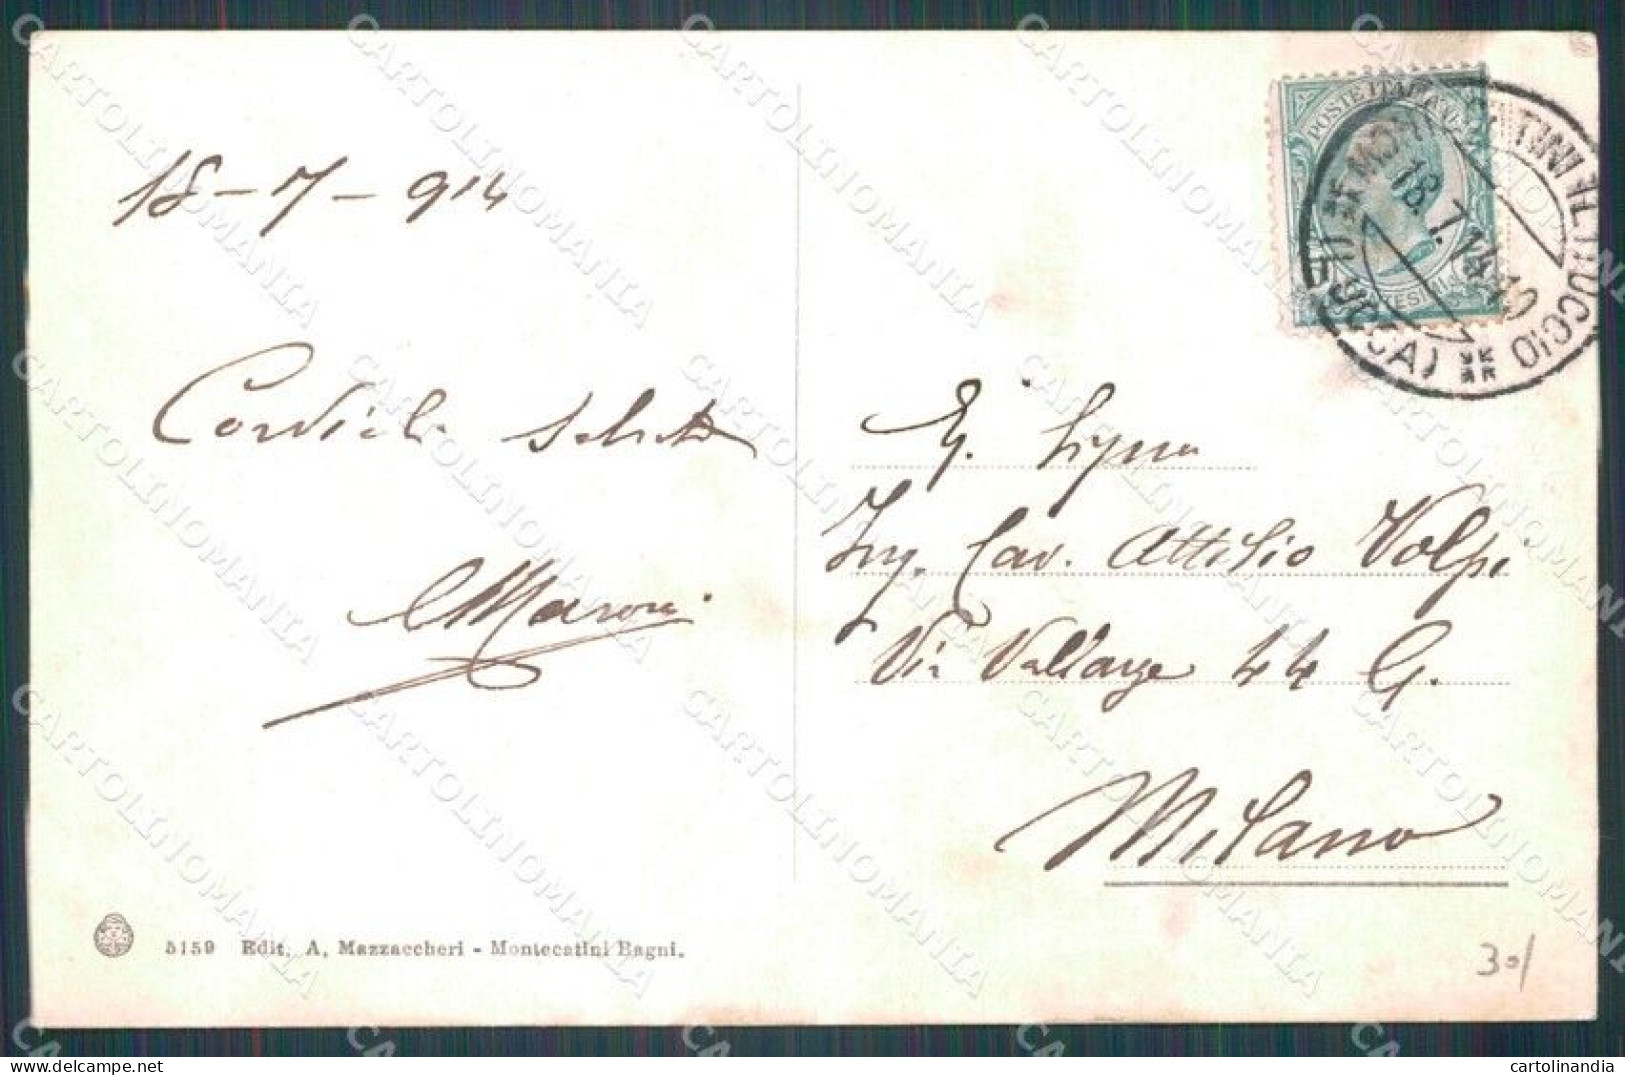 18-7-914
Cordiali saluti
Maroni
POSTE ITALIANE
CENTESIMI
MONTECATINI VAL DI
(LUCCA)
18.7.14
E. Signor
Ing. Cav. Attilio Volpi
Via Vallazze 44 G.
Milano
5159 Edit. A. Mazzaccheri - Montecatini Bagni.
30/
CARTOLINOMANIA
cartolinandia